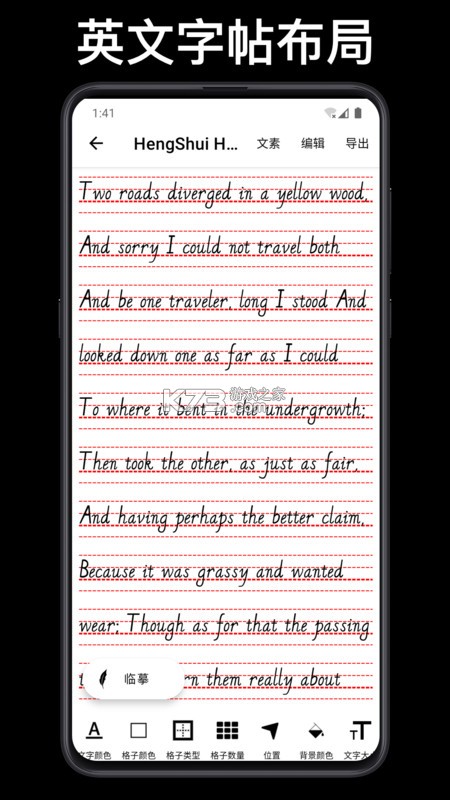 英文字帖布局
1:41
HengShui H... 文素 编辑 导出
Two roads diverged in a yellow wood,
And sorry I could not travel both
And be one traveler, long I stood And
looked down one as far as I could
K73 游戏之家 .com
To where it bent in the undergrowth;
Then took the other, as just as fair,
And having perhaps the better claim,
Because it was grassy and wanted
wear; Though as for that the passing
them really about
临摹
文字颜色 格子颜色 格子类型 格子数量 位置 背景颜色 文字大